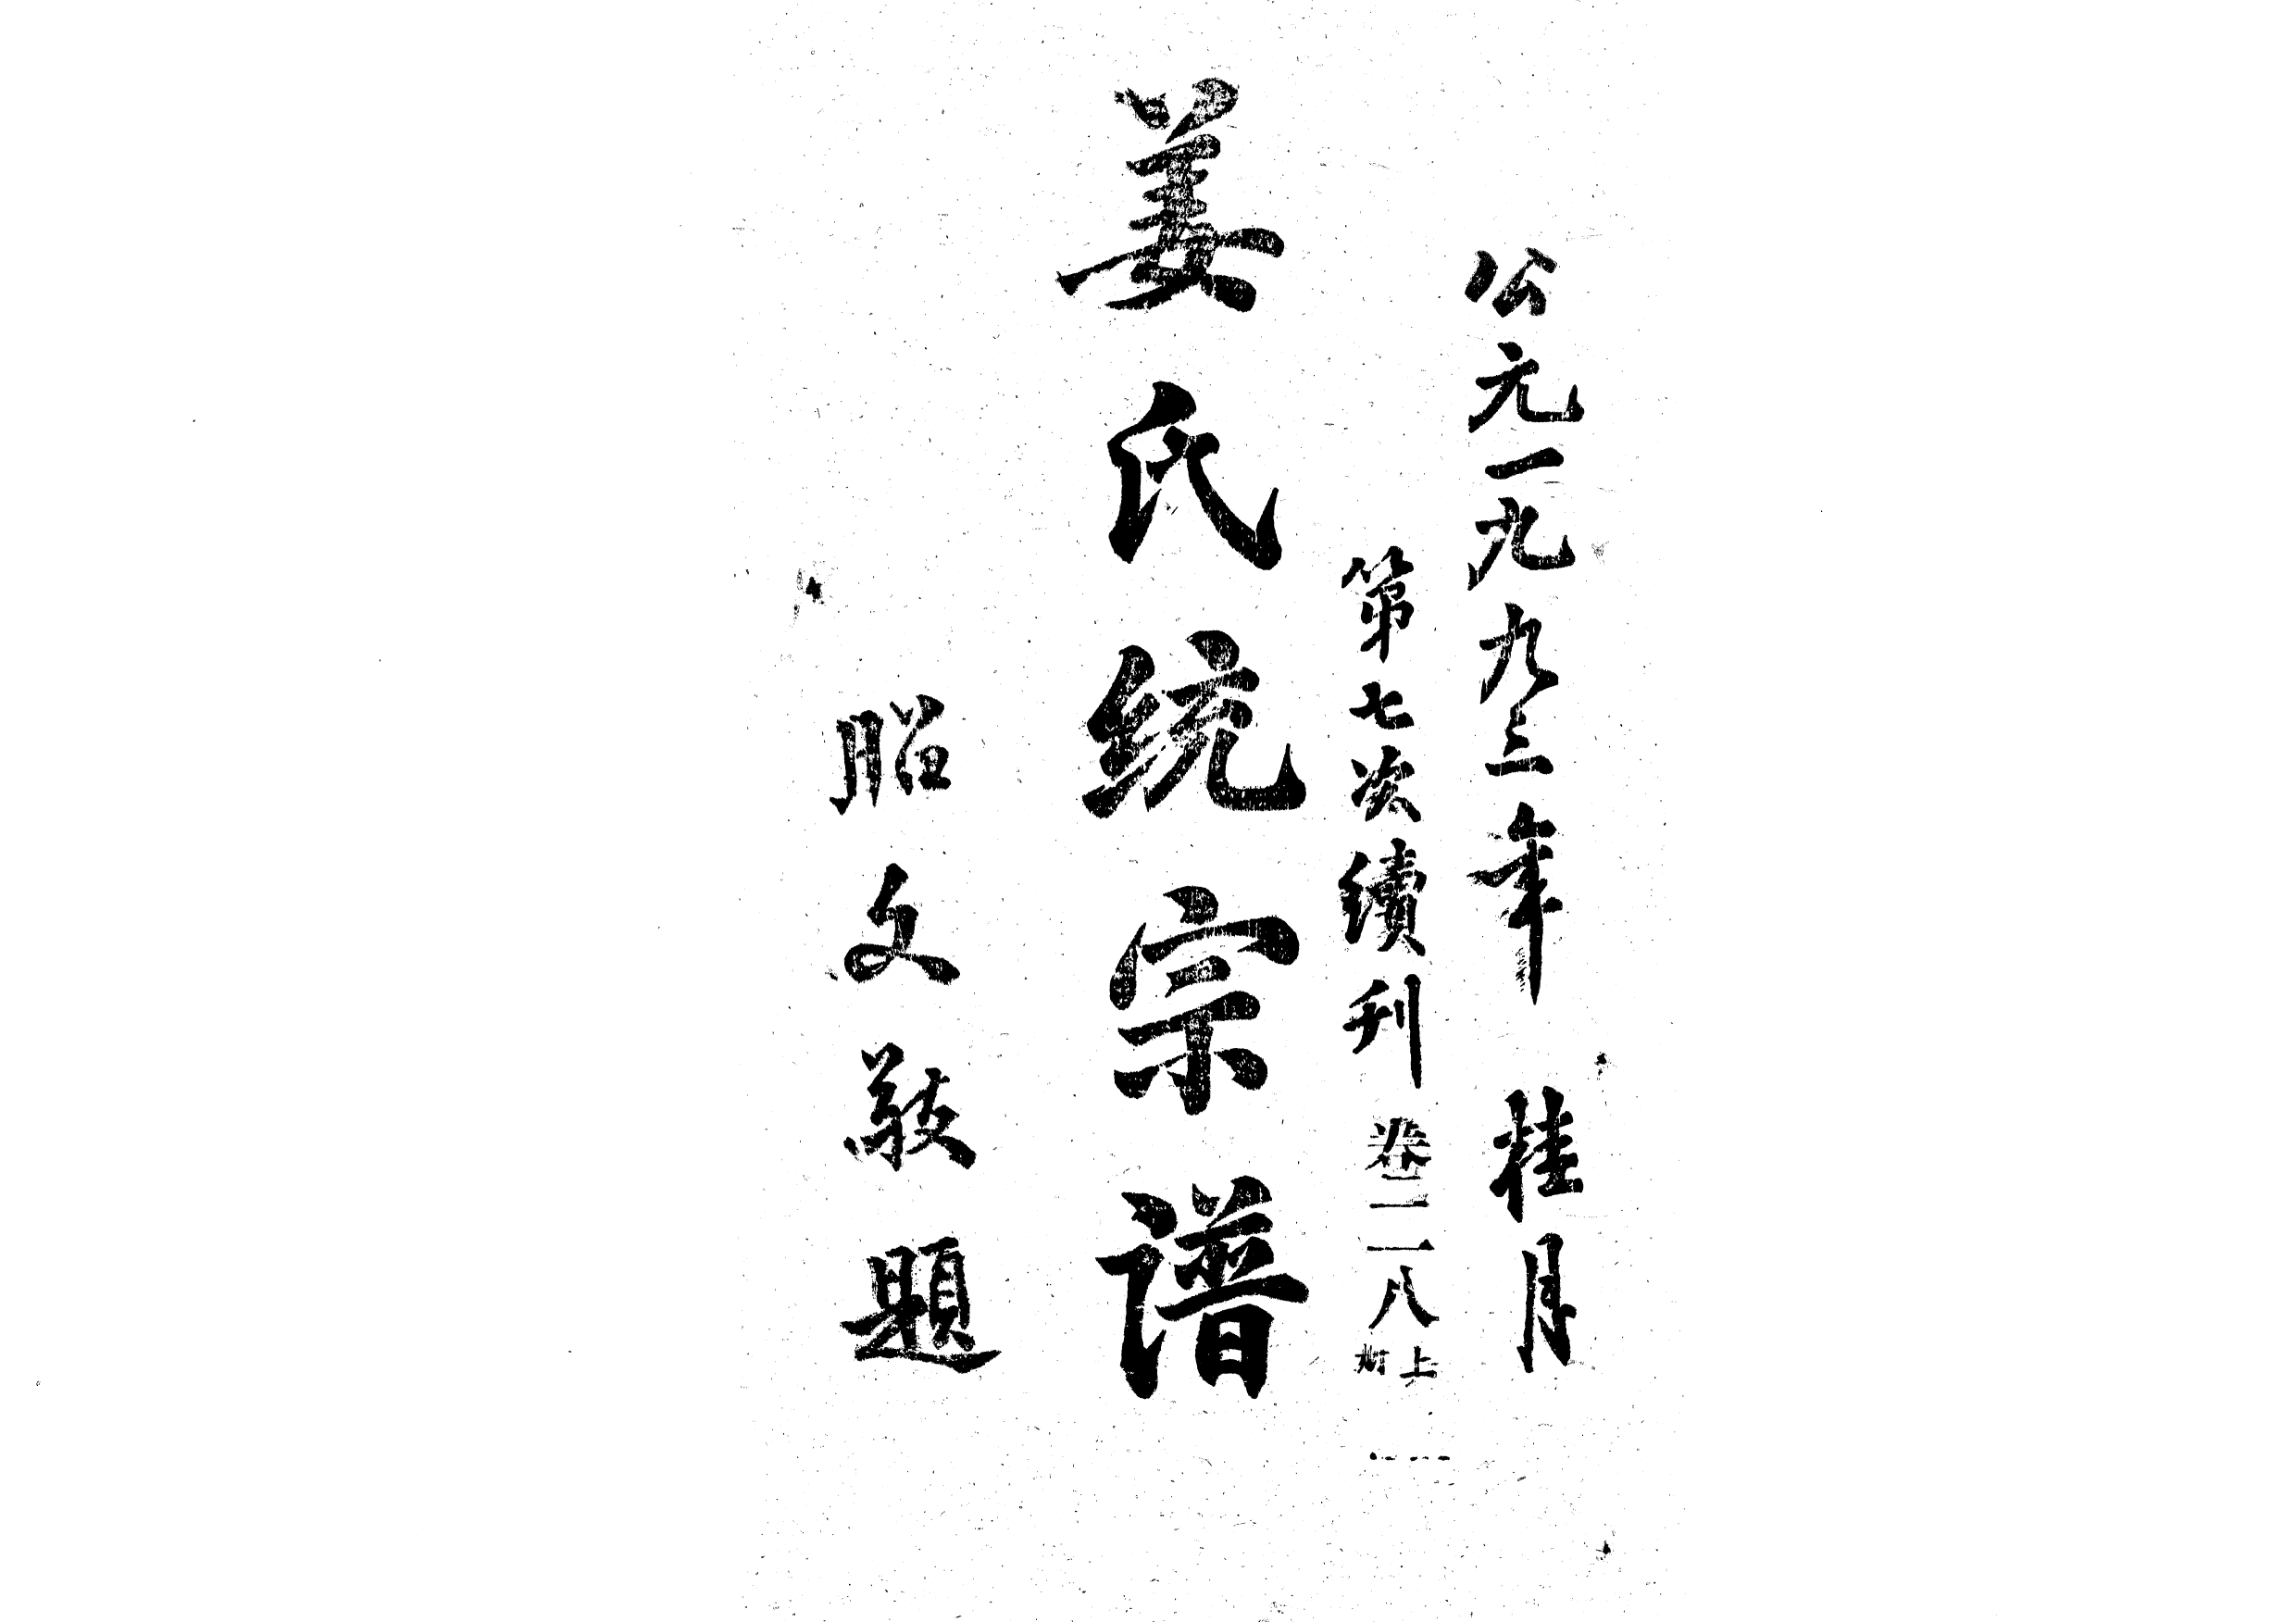 公元一九九三年 桂月
第七次續刊 卷二八上
姜氏统宗谱
昭文敬題